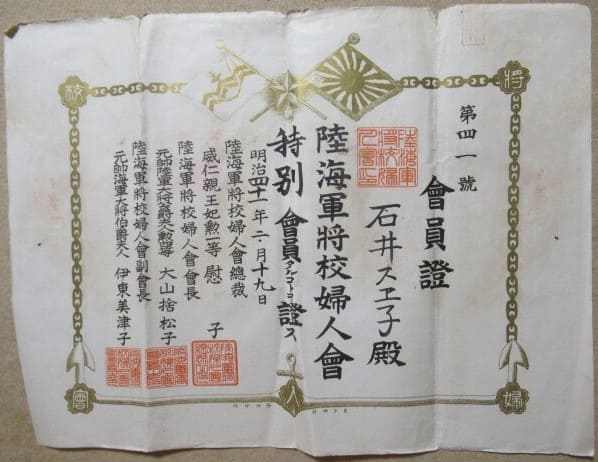 第四一號
會員證
石井スヱ子殿
陸海軍將校婦人會
特別會員タルコトヲ證ス
明治四十一年二月十九日
陸海軍將校婦人會總裁
威仁親王妃勲一等慰子
陸海軍將校婦人會會長
元帥陸軍大將侯爵夫人勲四等大山捨松子
陸海軍將校婦人會副會長
元帥海軍大將伯爵夫人伊東美津子
將
校
婦
人
會